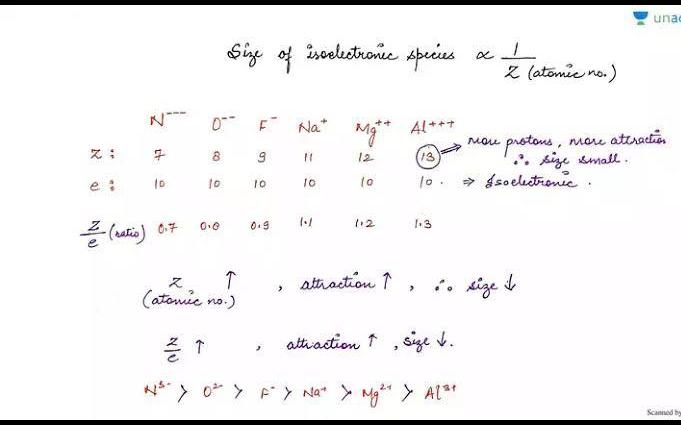 unac
Size of isoelectronic species ∝ 1/Z (atomic no.)
N--- O-- F- Na+ Mg++ Al+++
Z : 7 8 9 11 12 13 ⇒ More protons, more attraction
∴ size small.
e : 10 10 10 10 10 10. ⇒ Isoelectronic.
Z/e (ratio) 0.7 0.8 0.9 1.1 1.2 1.3
Z ↑ , attraction ↑ , ∴ size ↓
(atomic no.)
Z/e ↑ , attraction ↑ , size ↓.
N3- > O2- > F- > Na+ > Mg2+ > Al3+
Scanned by